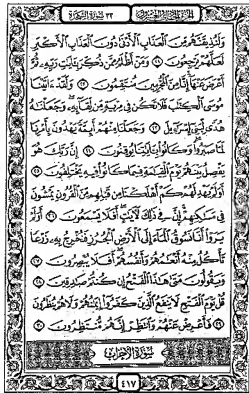 الجزء الحادي والعشرون ٣٢ سورة السجدة
ولنذيقنهم من العذاب الأدنى دون العذاب الأكبر
لعلهم يرجعون ٢١ ومن أظلم ممن ذكر بآيات ربه ثم
أعرض عنها إنا من المجرمين منتقمون ٢٢ ولقد ءاتينا
موسى الكتب فلا تكن في مرية من لقائه وجعلنه
هدى لبني إسرءيل ٢٣ وجعلنا منهم أئمة يهدون بأمرنا
لما صبروا وكانوا بءايتنا يوقنون ٢٤ إن ربك هو
يفصل بينهم يوم القيمة فيما كانوا فيه يختلفون ٢٥
أولم يهد لهم كم أهلكنا من قبلهم من القرون يمشون
في مسكنهم إن في ذلك لأيت أفلا يسمعون ٢٦ أولم
يروا أنا نسوق الماء إلى الأرض الجرز فنخرج به زرعا
تأكل منه أنعمهم وأنفسهم أفلا يبصرون ٢٧
ويقولون متى هذا الفتح إن كنتم صدقين ٢٨
قل يوم الفتح لا ينفع الذين كفروا إيمنهم ولا هم ينظرون
٢٩ فأعرض عنهم وانتظر إنهم منتظرون ٣٠
سورة الأحزاب
٤١٧